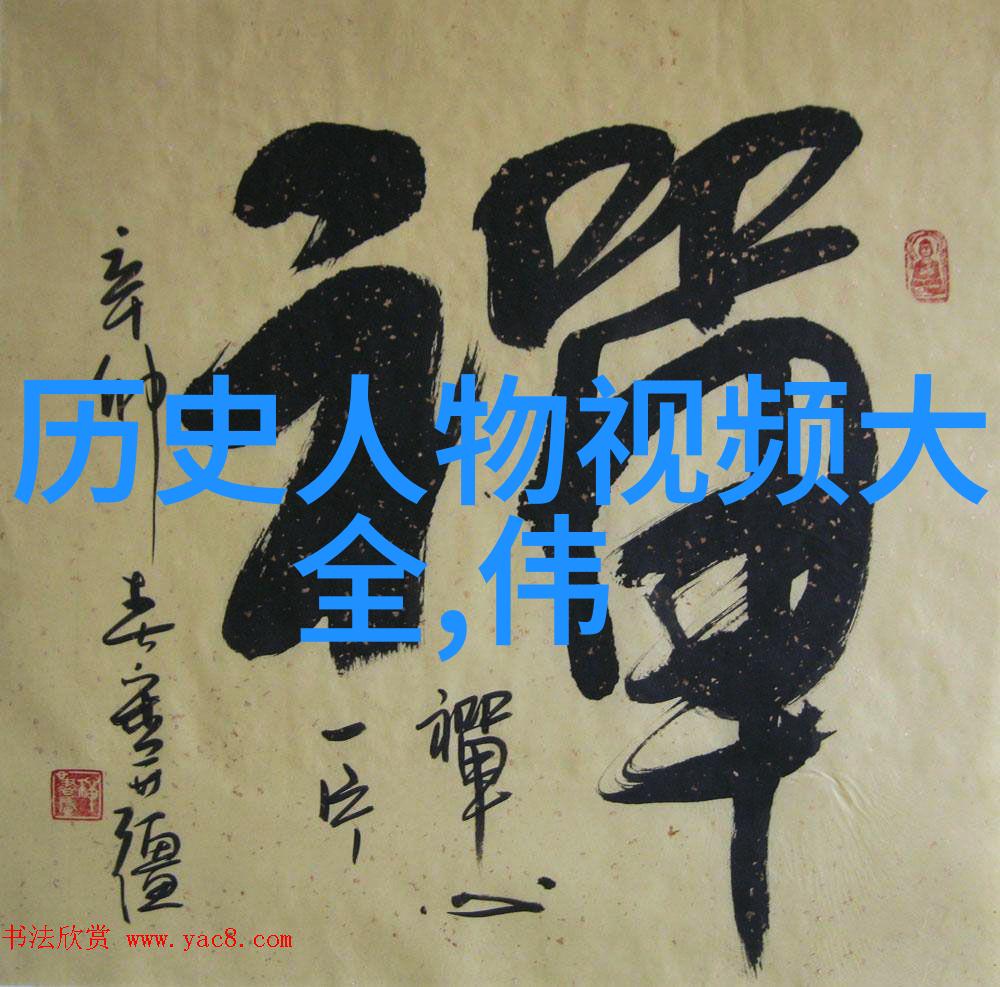 禪
禪心
一片
辛卯春
历史人物视频大
全,伟
书法欣赏 www.yac8.com